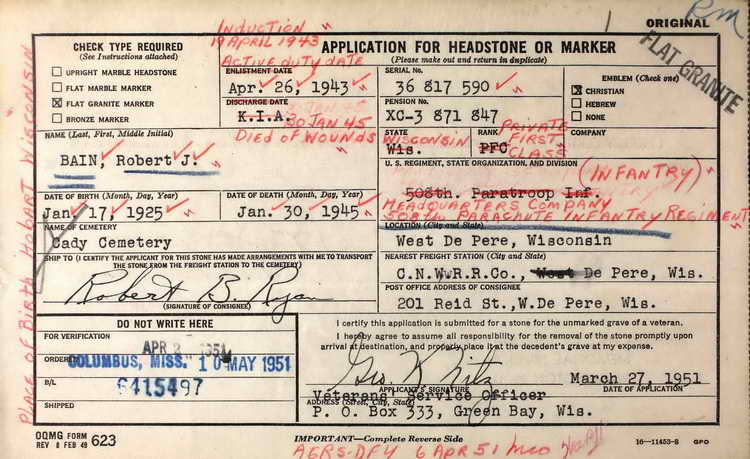 Induction
19 April 1943
Active duty date
1
ORIGINAL
Rm
FLAT GRANITE
CHECK TYPE REQUIRED
(See Instructions attached)
UPRIGHT MARBLE HEADSTONE
FLAT MARBLE MARKER
☒ FLAT GRANITE MARKER
BRONZE MARKER
APPLICATION FOR HEADSTONE OR MARKER
(Please make out and return in duplicate)
ENLISTMENT DATE
Apr. 26, 1943
DISCHARGE DATE
K.I.A.
30 JAN 45
Died of Wounds
SERIAL No.
36 817 590
PENSION No.
XC-3 871 847
EMBLEM (Check one)
☒ CHRISTIAN
HEBREW
NONE
NAME (Last, First, Middle Initial)
BAIN, Robert J.
STATE
Wisconsin
Wis.
RANK
Private
First
Class
PFC
COMPANY
U. S. REGIMENT, STATE ORGANIZATION, AND DIVISION
(INFANTRY)
508th. Paratroop Inf.
Headquarters Company
508th Parachute Infantry Regiment
DATE OF BIRTH (Month, Day, Year)
Jan. 17, 1925
DATE OF DEATH (Month, Day, Year)
Jan. 30, 1945
NAME OF CEMETERY
Cady Cemetery
LOCATION (City and State)
West De Pere, Wisconsin
SHIP TO (I CERTIFY THE APPLICANT FOR THIS STONE HAS MADE ARRANGEMENTS WITH ME TO TRANSPORT
THE STONE FROM THE FREIGHT STATION TO THE CEMETERY)
Robert B. Ryan
(SIGNATURE OF CONSIGNEE)
NEAREST FREIGHT STATION (City and State)
C.N.W.R.R.Co., West De Pere, Wis.
POST OFFICE ADDRESS OF CONSIGNEE
201 Reid St.,W.De Pere, Wis.
DO NOT WRITE HERE
FOR VERIFICATION
APR 1951
ORDERED
COLUMBUS, MISS. 10 MAY 1951
B/L
6415497
SHIPPED
I certify this application is submitted for a stone for the unmarked grave of a veteran.
I hereby agree to assume all responsibility for the removal of the stone promptly upon
arrival at destination, and properly place it at the decedent's grave at my expense.
March 27, 1951
APPLICANT'S SIGNATURE
DATE OF APPLICATION
Veterans' Service Officer
ADDRESS (Street, City, State)
P. O. Box 333, Green Bay, Wis.
OQMG FORM
REV 8 FEB 49 623
IMPORTANT—Complete Reverse Side
16—11453-8 GPO
AGRS-DFY 6 APR 51
Place of Birth Hobart Wisconsin